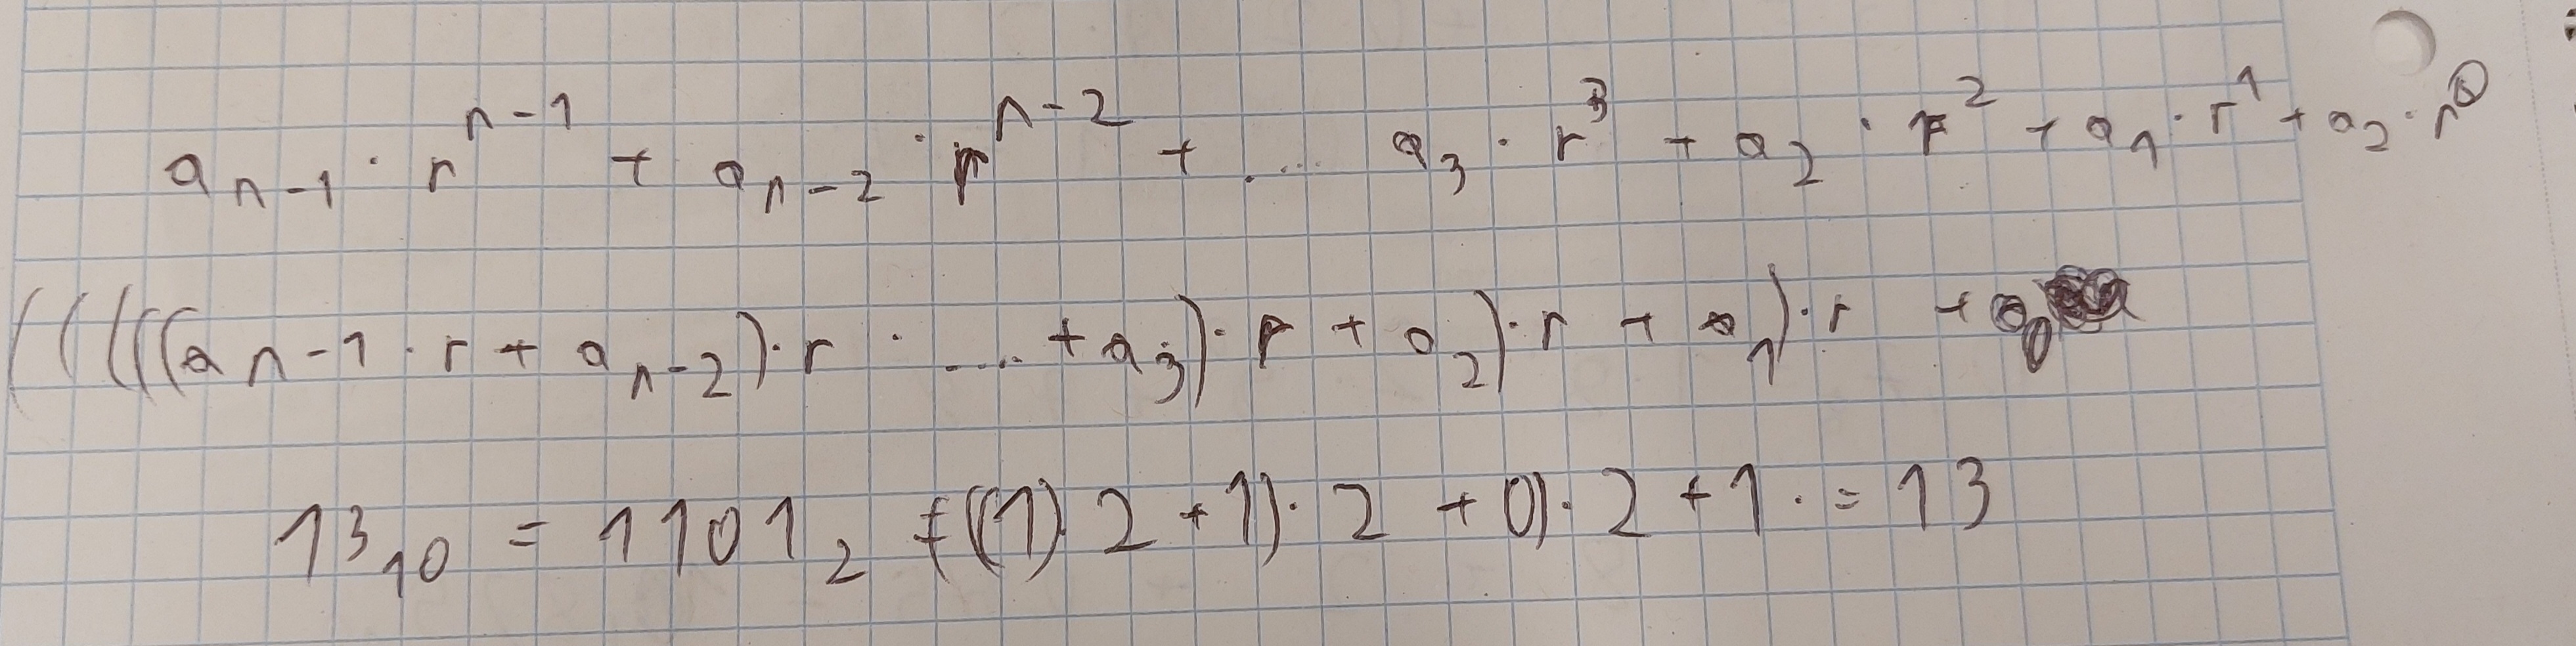 a_{n-1} · r^{n-1} + a_{n-2} · r^{n-2} + .... a_3 · r^3 + a_2 · r^2 + a_1 · r^1 + a_2 · r^0
((((((a_{n-1} · r + a_{n-2}) · r · .... + a_3) · r + a_2) · r + a_1) · r + a_0
13_{10} = 1101_2 = (((1) 2 + 1) · 2 + 0) · 2 + 1 · = 13